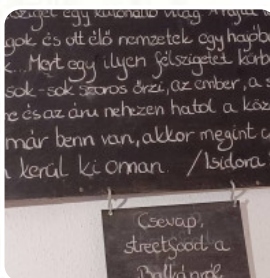 egy különálló világ. A rajta
gok és ott élő nemzetek egy hajóba
k... Mert egy ilyen félszigetet körb
sok-sok szoros őrzi, az ember, a
re és az áru nehezen hatol a köz
már benn van, akkor megint
kerül ki onnan. /Isidora
Csevap,
streetfood a
Balkánról